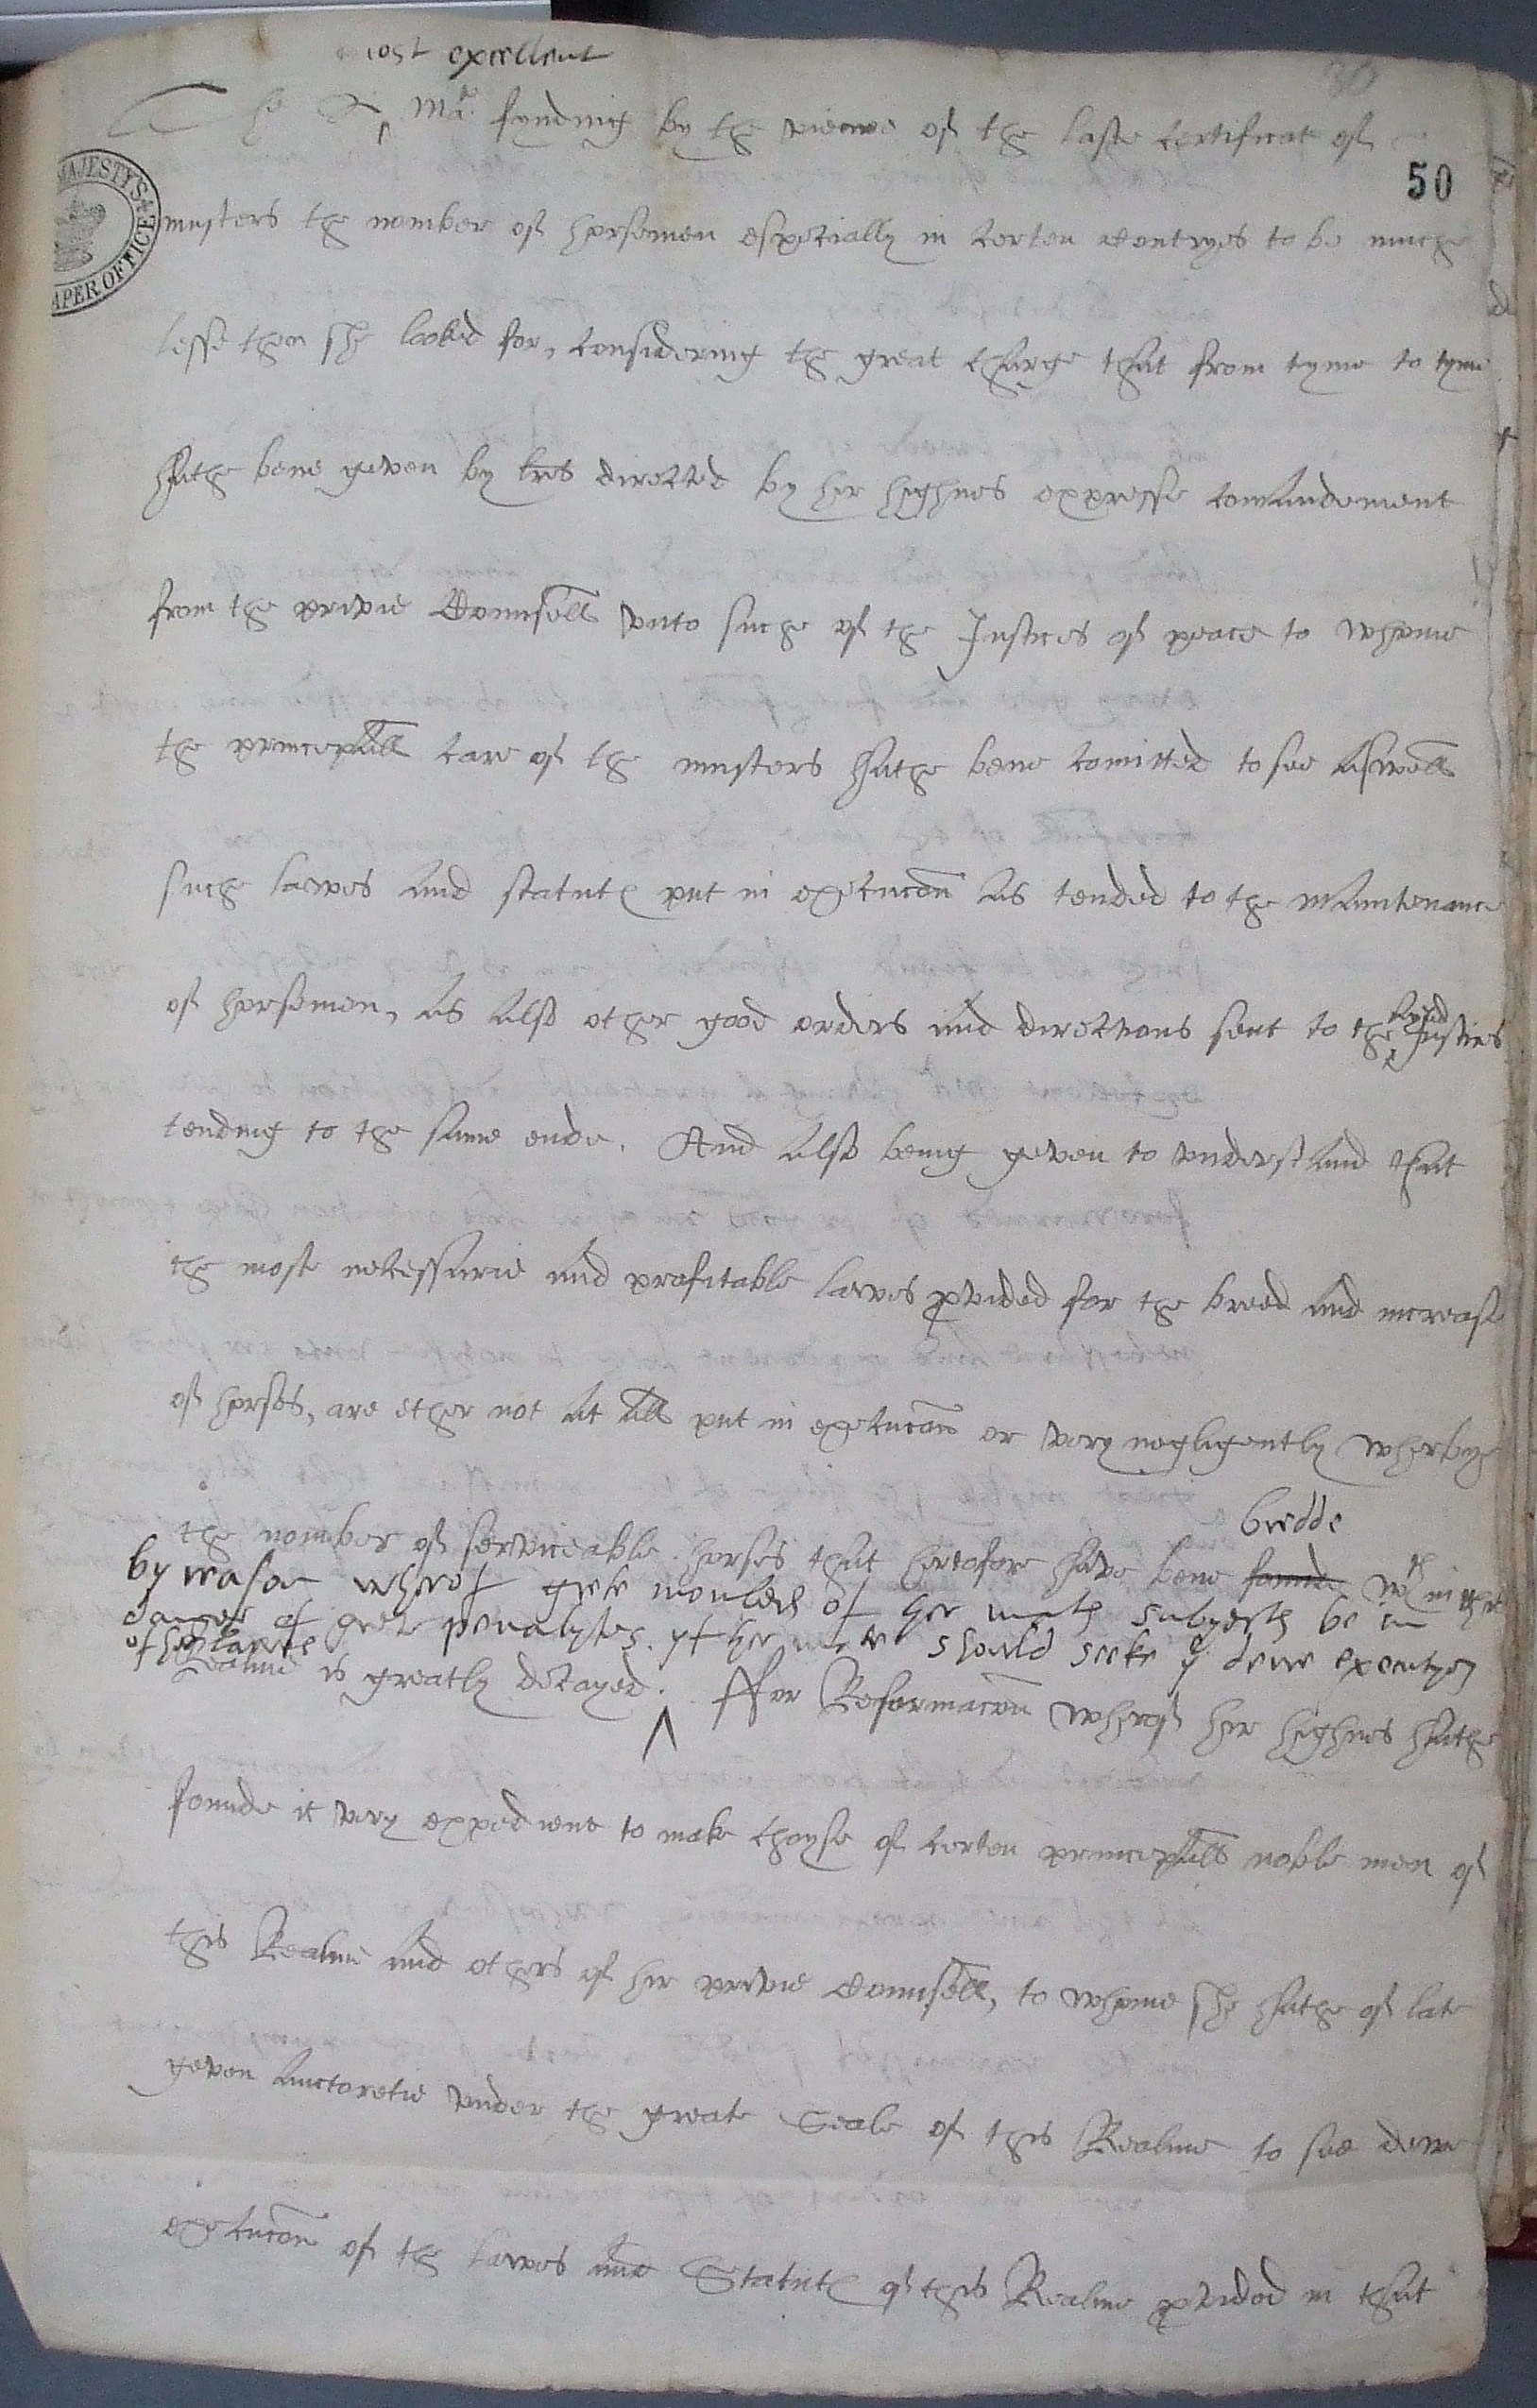 most excellent
The Q Ma:te fynding by the viewe of the laste certificat of
50
musters the nomber of horsemen espetially in certen Contryes to be muche
lesse then she looked for, considering the great charge that from tyme to tyme
hathe bene geven by lres directed by her highnes expresse comandement
from the privie Counsell vnto suche of the Justices of peace to whome
the princepall care of the musters hathe bene comitted to see aswell
suche lawes and statutes put in execucon as tended to the mantenance
of horsemen, as also other good orders and directions sent to the sayd Justices
tending to the same ende. And also being geven to vnderstand that
the moste necessarie and profitable lawes provided for the breed and increase
of horses, are ether not at all put in execucon or very negligently wherbye
the nomber of serviceable horses that hertofore have bene founde bredde wth in this
by reason wherof grete nombers of her mates subjects be in
danger of grete penaltyes. yf her mate should seeke ye dewe executyon
of the lawes
Realme is greatly decayed. ffor Reformacon wherof her highnes hathe
founde it very expedient to make choyse of certen princepall noble men of
this Realme and others of her privie Counsell, to whome she hathe of late
geven auctoretie vnder the greate Seale of this Realme to see dewe
execucon of the lawes and Statutes of this Realme provided in that
MAJESTY'S
PAPER OFFICE